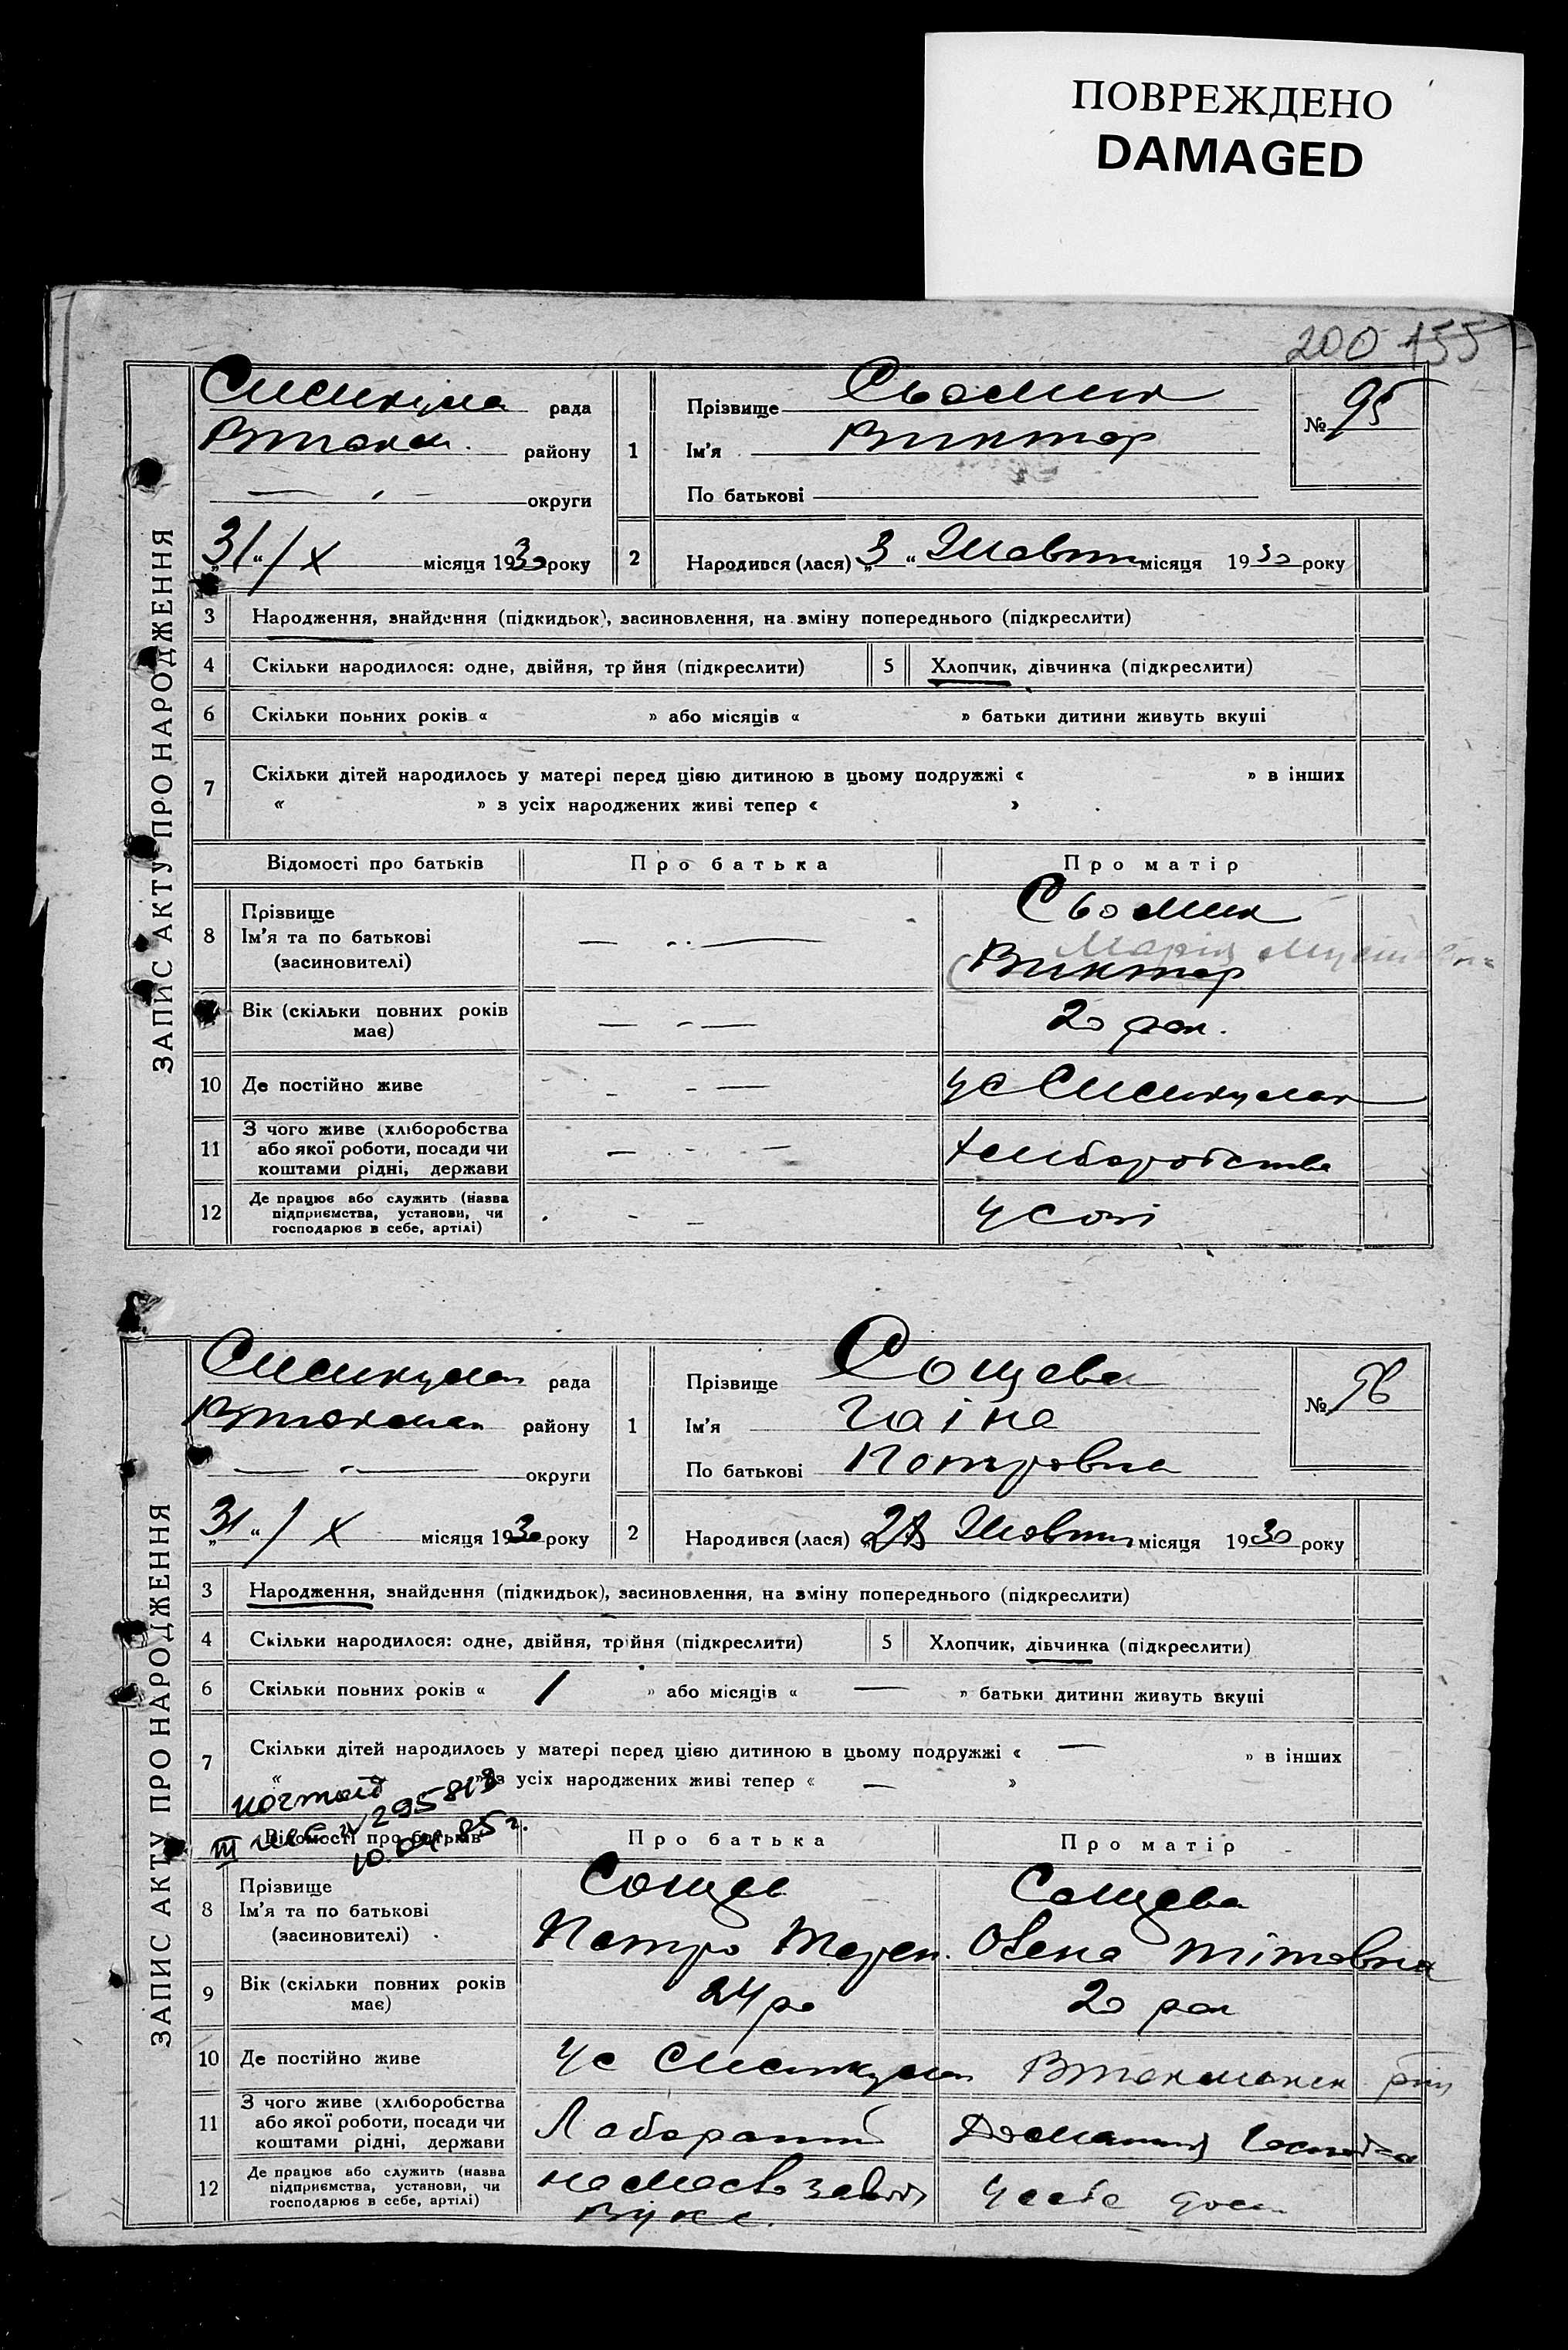 ПОВРЕЖДЕНО
DAMAGED
200 155
ЗАПИС АКТУ ПРО НАРОДЖЕННЯ
рада
району
— округи
„31“ / X місяця 1930 року
1
Прізвище Сьомик
Ім'я Виктор
По батькові
№ 95
2 Народився (лася) „3“ Жовтн місяця 1930 року
3 Народження, знайдення (підкидьок), засиновлення, на зміну попереднього (підкреслити)
4 Скільки народилося: одне, двійня, трійня (підкреслити) 5 Хлопчик, дівчинка (підкреслити)
6 Скільки повних років « » або місяців « » батьки дитини живуть вкупі
7 Скільки дітей народилось у матері перед цією дитиною в цьому подружжі « » в інших
« » з усіх народжених живі тепер « »
Відомості про батьків Про батька Про матір
8 Прізвище
Ім'я та по батькові
(засиновителі)
— —
Сьомик
Марія
Виктор
Вік (скільки повних років має) — — 20 рок.
10 Де постійно живе — — ус
11 З чого живе (хліборобства
або якої роботи, посади чи
коштами рідні, держави
— — хліборобства
12 Де працює або служить (назва
підприємства, установи, чи
господарює в себе, артілі)
— —
ЗАПИС АКТУ ПРО НАРОДЖЕННЯ
рада
району
— округи
„31“ / X місяця 1930 року
1
Прізвище Сощева
Ім'я Гаіна
По батькові Петровна
№ 96
2 Народився (лася) Жовтн місяця 1930 року
3 Народження, знайдення (підкидьок), засиновлення, на зміну попереднього (підкреслити)
4 Скільки народилося: одне, двійня, трійня (підкреслити) 5 Хлопчик, дівчинка (підкреслити)
6 Скільки повних років « 1 » або місяців « — » батьки дитини живуть вкупі
7 Скільки дітей народилось у матері перед цією дитиною в цьому подружжі « — » в інших
« » з усіх народжених живі тепер « — »
III 295813
10.04.85 г.
Відомості про батьків Про батька Про матір
8 Прізвище
Ім'я та по батькові
(засиновителі)
Сощев
Петро
Сощева
Олена Тітовна
9 Вік (скільки повних років має) 24 ро 20 рок
10 Де постійно живе ус
11 З чого живе (хліборобства
або якої роботи, посади чи
коштами рідні, держави
Лаборант Домашня
12 Де працює або служить (назва
підприємства, установи, чи
господарює в себе, артілі)
на заводі